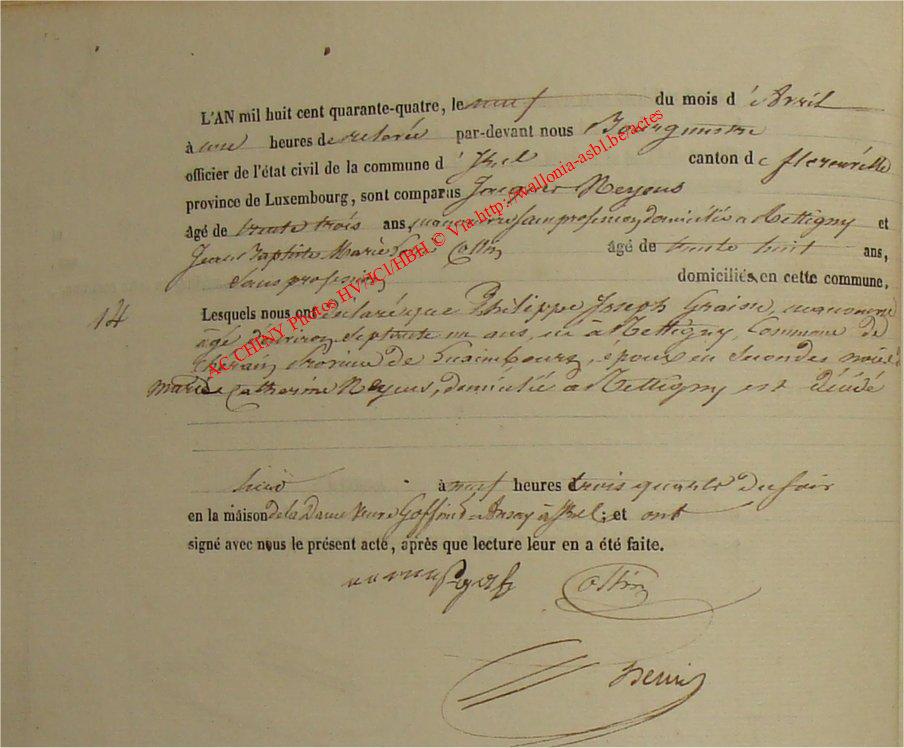 L'AN mil huit cent quarante-quatre, le neuf du mois d'Avril
à une heures de relevée par-devant nous Bourgmestre
officier de l'état civil de la commune d'Izel canton de florenville
province de Luxembourg, sont comparus Jacques Neyens
âgé de trente trois ans, sans profession, domicilié à Mettigny et
Jean Baptiste Marie Collin âgé de trente huit ans,
Sans profession domiciliés en cette commune,
14 Lesquels nous ont déclaré que Philippe Joseph Graisse,
âgé d'environ septante un ans, né à Mettigny, Commune de
Cherain province de Luxembourg, époux en secondes noces de
marie Catherine Neyens, domicilié à Mettigny est décédé
hier à neuf heures trois quarts du soir
en la maison de la Dame Veuve Goffinet à Izel; et ont
signé avec nous le présent acte, après que lecture leur en a été faite.
Collin
Henri
Ac CHINY Photos HV/JCI/HBH © Via http://wallonia-asbl.be/actes